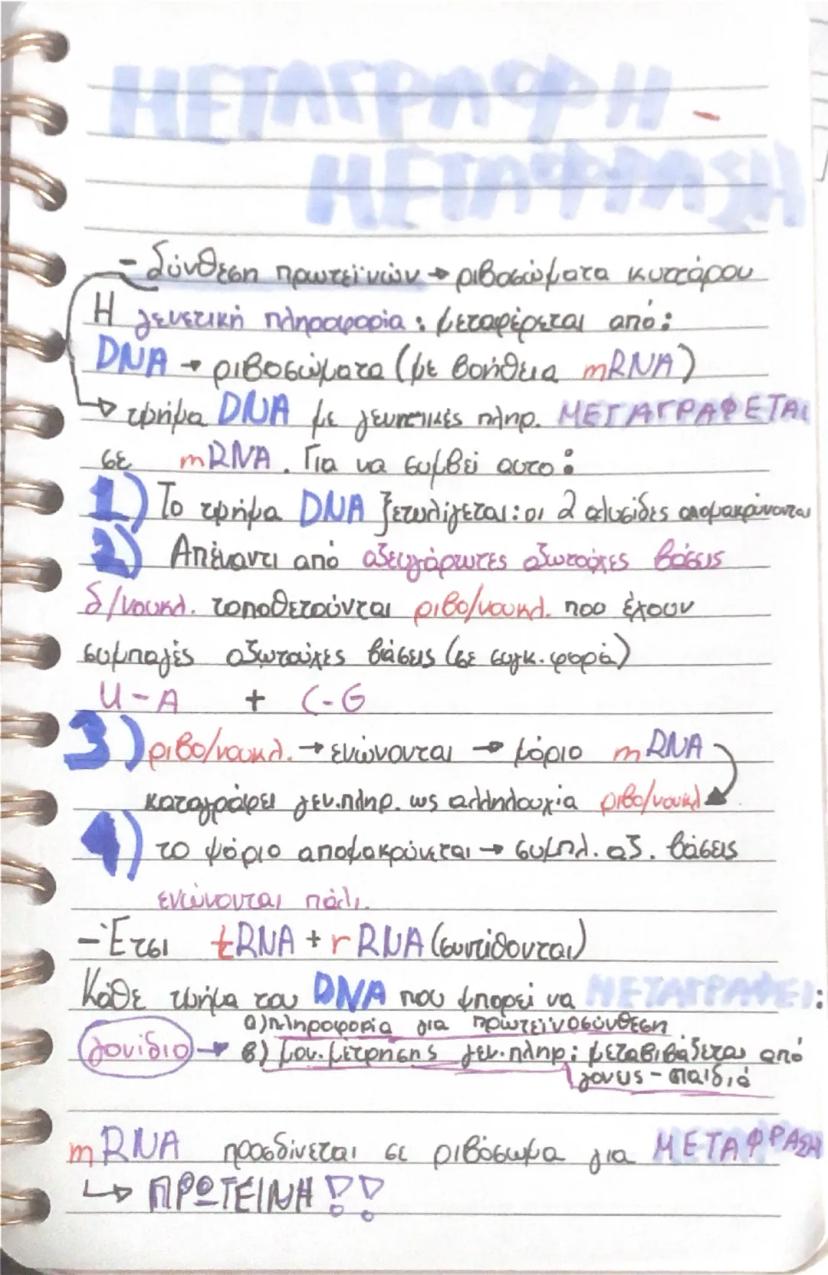 ΜΕΤΑΓΡΑΦΗ -
ΜΕΤΑΦΡΑΣΗ
- Σύνθεση πρωτεϊνών → ριβοσώματα κυττάρου
Η γενετική πληροφορία : μεταφέρεται από:
DNA → ριβοσώματα (με βοήθεια mRNA)
→ τμήμα DNA με γενετικές πληρ. ΜΕΤΑΓΡΑΦΕΤΑΙ
σε mRNA. Για να συμβεί αυτο:
1) Το τμήμα DNA ξετυλίγεται: οι 2 αλυσίδες απομακρύνονται
2) Απέναντι από αζευγάρωτες αζωτούχες βάσεις
δ/νουκλ. τοποθετούνται ριβο/νουκλ. που έχουν
συμπαγές αζωτούχες βάσεις (σε συγκ. φορά)
U - A + C - G
3) ριβο/νουκλ. → ενώνονται → μόριο mRNA
καταγράφει γεν. πληρ. ως αλληλουχία ριβο/νουκλ
4) το μόριο απομακρύνεται → συμπλ. αζ. βάσεις
ενώνονται πάλι.
- Έτσι tRNA + rRNA (συντίθονται)
Κάθε τμήμα του DNA που μπορεί να ΜΕΤΑΓΡΑΦΕΙ:
α) πληροφορία για πρωτεϊνοσύνθεση
γονίδιο → β) μον. μέτρησης γεν. πληρ: μεταβιβάζεται από
γονεις - παιδιά
mRNA προσδίνεται σε ριβόσωμα για ΜΕΤΑΦΡΑΣΗ
↳ ΠΡΩΤΕΙΝΗ!!